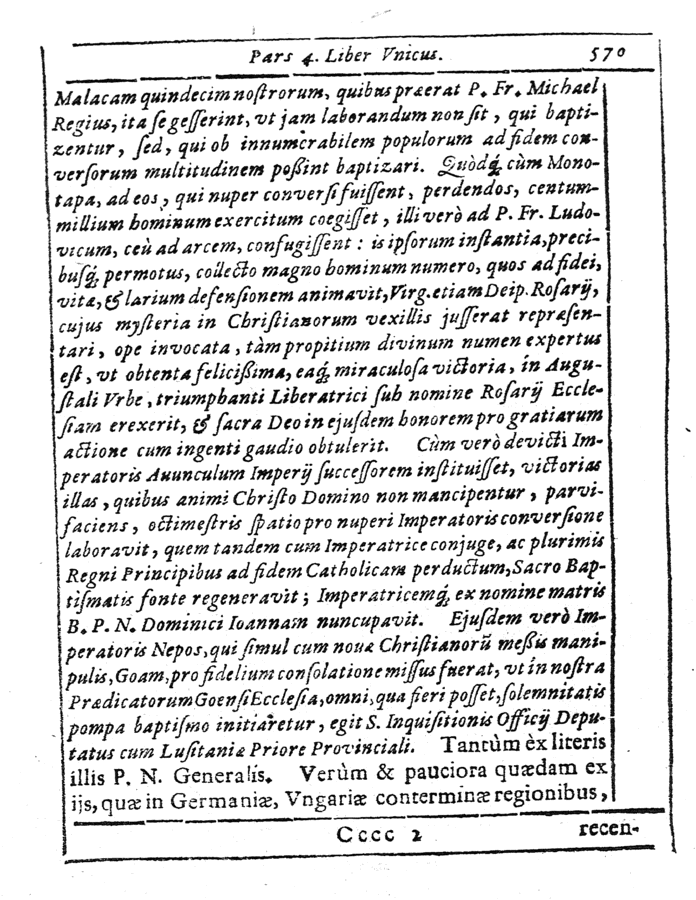 Pars 4. Liber Vnicus. 570
Malacam quindecim noſtrorum, quibus præerat P. Fr. Michael
Regius, ita ſe geſſerint, vt jam laborandum non ſit, qui bapti-
zentur, ſed, qui ob innumerabilem populorum ad fidem con-
verſorum multitudinem poßint baptizari. Quòdq́; cùm Mono-
tapa, ad eos, qui nuper converſi fuiſſent, perdendos, centum-
millium hominum exercitum coegiſſet, illi verò ad P. Fr. Ludo-
vicum, ceù ad arcem, confugiſſent: is ipſorum inſtantia, preci-
buſq́; permotus, collecto magno hominum numero, quos ad fidei,
vitæ, & larium defenſionem animavit, Virg. etiam Deip. Roſarij,
cujus myſteria in Chriſtianorum vexillis juſſerat repræſen-
tari, ope invocata, tàm propitium divinum numen expertus
eſt, vt obtenta felicißima, eaq́; miraculoſa victoria, in Augu-
ſtali Vrbe, triumphanti Liberatrici ſub nomine Roſarij Eccle-
ſiam erexerit, & ſacra Deo in ejuſdem honorem pro gratiarum
actione cum ingenti gaudio obtulerit. Cùm verò devicti Im-
peratoris Auunculum Imperij ſucceſſorem inſtituiſſet, victorias
illas, quibus animi Chriſto Domino non mancipentur, parvi-
faciens, octimeſtris ſpatio pro nuperi Imperatoris converſione
laboravit, quem tandem cum Imperatrice conjuge, ac plurimis
Regni Principibus ad fidem Catholicam perductum, Sacro Bap-
tiſmatis fonte regeneravit; Imperatricemq́; ex nomine matris
B. P. N. Dominici Ioannam nuncupavit. Ejuſdem verò Im-
peratoris Nepos, qui ſimul cum novæ Chriſtianorū meßis mani-
pulis, Goam, pro fidelium conſolatione miſſus fuerat, vt in noſtra
Prædicatorum Goenſi Eccleſia, omni, qua fieri poſſet, ſolemnitatis
pompa baptiſmo initiaretur, egit S. Inquiſitionis Officij Depu-
tatus cum Luſitaniæ Priore Provinciali. Tantùm èx literis
illis P. N. Generalis. Verùm & pauciora quædam ex
ijs, quæ in Germaniæ, Vngariæ conterminæ regionibus,
Cccc 2 recen-